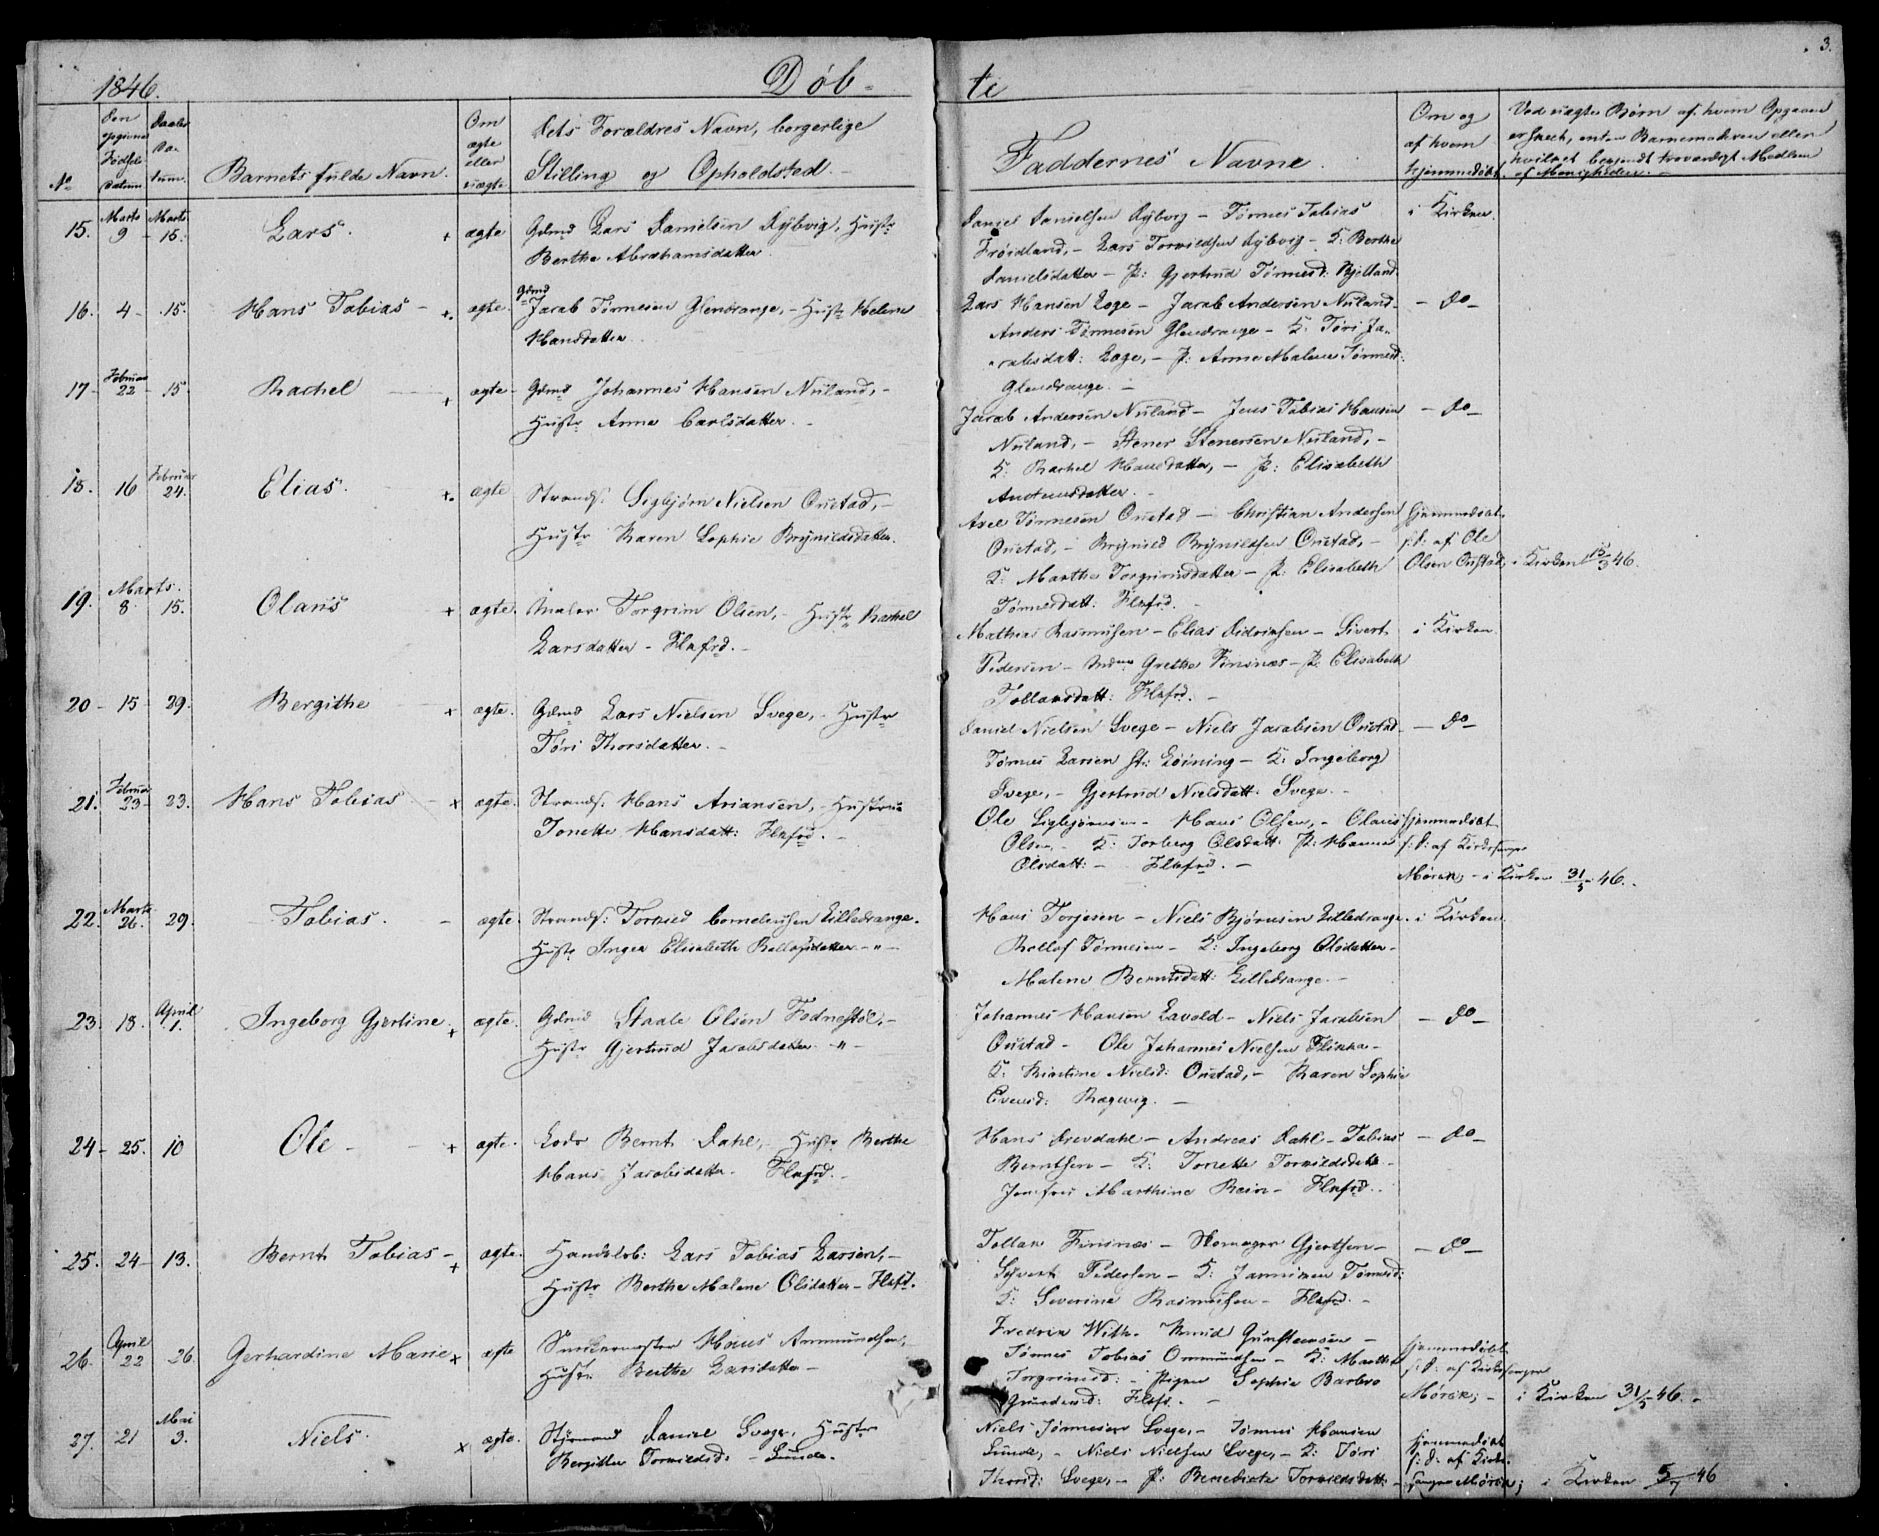 3.
1846.
Døb-
te
No
Den opgivne Fødsels Datum
Daabs Datum.
Barnets fulde Navn.
Om ægte eller uægte
Dets Forældres Navn, borgerlige
Stilling og Opholdsted.
Faddernes Navne.
Om og af hvem hjemmedøbt
Ved uægte Børn af hvem Opgaven
er skeet, enten Barnemoderen eller
hvilket bekjendt troværdigt Medlem
af Menigheden.
15. Marts 9 - Marts 15. Lars. + ægte
Gdmd Lars Danielsen Dybvig, Hustr
Berthe Abrahamsdatter
Daniel Danielsen Dybvig - Tønnes Tobias
Frøidland, - Lars Torkildsen Dybvig - K: Berthe
Danielsdatter - P: Gjertrud Tønnesd: Bjelland
i Kirken.
16. 4 - 15. Hans Tobias - +. ægte.
Gdmd
Jacob Tønnesen Glendrange, - Hustr Helene
Hansdatter.
Lars Hansen Loge - Jacob Andersen Nuland -
Anders Tønnesen Glendrange - K: Tøri Ja-
cobsdatt: Loge, - P: Anne Malene Tønnesd:
Glendrange. -
- do -
17 - Februar 22 - 15. Rachel + ægte -
Gdmd Johannes Hansen Nuland, -
Hustr Anna Carlsdatter. -
Jacob Andersen Nuland - Jens Tobias Hansen
Nuland, - Stener Stenersen Nuland, -
K: Rachel Hansdatter, - P: Elisabeth
Andersdatter. -
- do -
18. 16 Februar 24. Elias. +. ægte
Strands. Sigbjørn Nielsen Oustad, -
Hustr Karen Sophie Brynildsdatter.
Axel Tønnesen Oustad - Christian Andersen
Oustad, - Brynild Brynildsen Oustad, -
K: Marthe Torgrimsdatter - P: Elisabeth
Tønnesdatt: Flkfrd. -
hjemmedøbt
s: D: af Ole
Olsen Oustad, i Kirken 15/3 46.
19. Marts. 8. 15. Olaus + ægte.
Maler Torgrim Olsen, - Hustr Rachel
Larsdatter - Flkfrd. -
Mathias Rasmusen - Elias Didriksen - Sivert
Pedersen - Mdme Grethe Finsnæs - P: Elisabeth
Tollaksdatt: Flkfrd. -
i Kirken
20 - 15 - 29. Bergithe + ægte.
Gdmd Lars Nielsen Svege, - Hustr
Tøri Thorsdatter. -
Daniel Nielsen Svege - Niels Jacobsen Oustad
Tønnes Larsen st: Løining - K: Ingeborg
Svege, - Gjertrud Nielsdatt: Svege. -
- do -
21. Februar 23 - 23. Hans Tobias + ægte.
Strands. Hans Ariansen, - Hustrue
Tonette Hansdatt: Flkfrd. -
Ole Sigbjørnsen - Hans Olsen, - Olaus
Olsen, - K: Torberg Olsdatt: P: Hanne
Olsdatt: - Flkfrd. -
hjemmedøbt
s: D: af Kirkesanger
Mørck, - i Kirken 31/5 46.
22. Marts 26. 29. Tobias. - ægte.
Strands: Torkild Corneliusen Lilledrange.
Hustr Inger Elisabeth Rollofsdatter - " -
Hans Torjesen - Niels Bjørnsen Lilledrange.
Rollof Tønnesen - K: Ingeborg Olsdatter -
Malene Berntsdatt: Lilledrange. -
i Kirken
23. 18. April 1. Ingeborg Gjertine. + ægte.
Gdmd Staale Olsen Fodnestøl, -
Hustr Gjertrud Jacobsdatter - " -
Johannes Hansen Lavold - Niels Jacobsen
Oustad - Ole Johannes Nielsen Flikka -
K: Kirstine Nielsd: Oustad, - Karen Sophie
Evensd: Rægevig. -
- do -
24 - 25. 10 Ole - + ægte.
Lods Bernt Dahl, - Hustr Berthe
Hans Jacobsdatter - Flkfrd. -
Hans Drevdahl - Andreas Dahl - Tobias
Berntsen - K: Tonette Torkildsdatt -
Jomfrue Marthine Rein - Flkfrd. -
- do -
25. 24 - 13. Bernt Tobias - + ægte.
Handelsb: Lars Tobias Larsen, -
Hustr Berthe Malene Olsdatter - Flkfd.
Tollak Finsnæs - Gjertsen -
Syvert Pedersen - K: Janniken Tønnesd:
K: Severine Rasmusen - Flkfrd. -
- do -
26. April 22 26. Gerhardine Marie + ægte
Hans Ammundsen, -
Hustr Berthe Larsdatter -
Fredrik With. Knud Gunstensen -
Tønnes Tobias Ommundsen - K: Marthe
Torgrimsd: - Pigen Sophie Barbro
Gundersd: Flkfd. -
hjemmedøbt
s: D: af Kirkesanger
Mørck; - i Kirken 31/5 46. -
27. 21 Mai 3. Niels. + ægte.
Styrmand Daniel Svege, Hustr
Bergitte Torkildsd: - Sunde.
Niels Tønnesen Svege, - Tønnes Hansen
Sunde, - Niels Nielsen Svege, - K: Tøri
Thorsd: Svege, - P: Benedicte Torkildsdatt: -
hjemmedøbt
s: D: af Kirke-
sanger Mørck; i Kirken 5/7 46